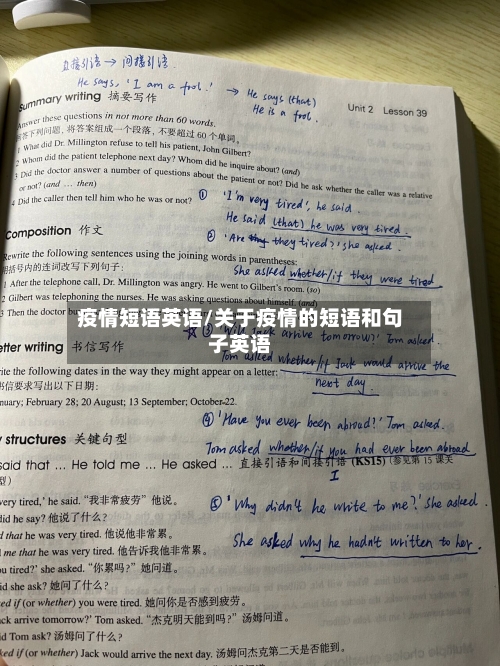 直接引语 → 间接引语
He says, 'I am a fool.' → He says (that)
He is a fool.
Summary writing 摘要写作
Unit 2 Lesson 39
Answer these questions in not more than 60 words.
答下列问题, 将答案组成一个段落, 不要超过 60 个单词。
1 What did Dr. Millington refuse to tell his patient, John Gilbert?
2 Whom did the patient telephone next day? Whom did he inquire about? (and)
3 Did the doctor answer a number of questions about the patient or not? Did he ask whether the caller was a relative
or not? (and … then)
4 Did the caller then tell him who he was or not?
① 'I'm very tired', he said.
He said (that) he was very tired.
Composition 作文
② 'Are they tired?' she asked.
Rewrite the following sentences using the joining words in parentheses:
用括号内的连词改写下列句子:
She asked whether/if they were tired
1 After the telephone call, Dr. Millington was angry. He went to Gilbert's room. (so)
2 Gilbert was telephoning the nurses. He was asking questions about himself. (and)
3 Then the doctor
疫情短语英语/关于疫情的短语和句子英语
③ Jack arrive tomorrow?' Tom asked.
Letter writing 书信写作
Tom asked whether/if Jack would arrive the
next day.
Write the following dates in the way they might appear on a letter:
书信要求写出以下日期:
January; February 28; 20 August; 13 September; October 22.
④ 'Have you ever been abroad?' Tom asked.
Key structures 关键句型
Tom asked whether/if you had ever been abroad
I
said that … He told me … He asked … 直接引语和间接引语 (KS15) (参见第 15 课关
型)
⑤ 'Why didn't he write to me?' she asked.
very tired,' he said. “我非常疲劳” 他说。
did he say? 他说了什么?
She asked why he hadn't written to her.
d that he was very tired. 他说他非常累。
me that he was very tired. 他告诉我他非常累。
ou tired?' she asked. “你累吗?” 她问道。
did she ask? 她问了什么?
ked if (or whether) you were tired. 她问你是否感到疲劳。
ack arrive tomorrow?' Tom asked. “杰克明天能到吗?” 汤姆问道。
did Tom ask? 汤姆问了什么?
ked if (or whether) Jack would arrive the next day. 汤姆问杰克第二天是否能到。